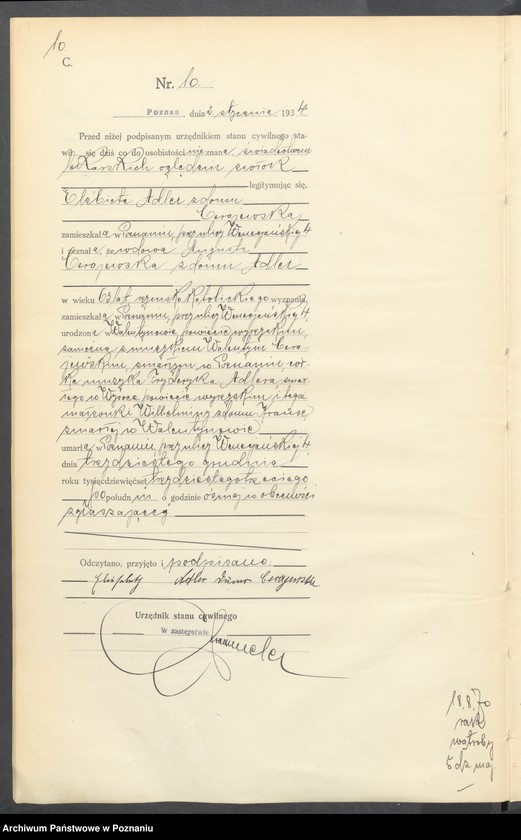 10
C.
Nr. 10.
Poznań, dnia 2 stycznia 1934
Przed niżej podpisanym urzędnikiem stanu cywilnego sta-
wił się dziś co do osobistości nieznana, świadectwem
lekarskich oględzin zwłok
legitymując się,
Elżbieta Adler z domu
Cerajewska
zamieszkała w Poznaniu, przy ulicy Weneciańskiej 4
i zeznała, że wdowa Augusta
Cerajewska z domu Adler
w wieku 63 lat rzymsko katolickiego wyznania,
zamieszkała w Poznaniu, przy ulicy Weneciańskiej 4
urodzona w Walentynowie powiecie wyrzyskim,
zamężna z muzykiem Walentym Cera-
jewskim, zmarłym w Poznaniu, cór-
ka muzyka Fryderyka Adlera, zmar-
łego w Wysoce powiecie wyrzyskim i tego
małżonki Wilhelminy z domu Krause
zmarłej w Walentynowie
umarła w Poznaniu, przy ulicy Weneciańskiej 4
dnia trzydziestego grudnia
roku tysiącdziewięćset trzydziestego trzeciego
po południu o godzinie ósmej w obecności
zgłaszającej
Odczytano, przyjęto i podpisano:
Adler Cerajewska
Urzędnik stanu cywilnego
W zastępstwie
18.8.70
rak
wątroby
5 dz. maj.
Archiwum Państwowe w Poznaniu